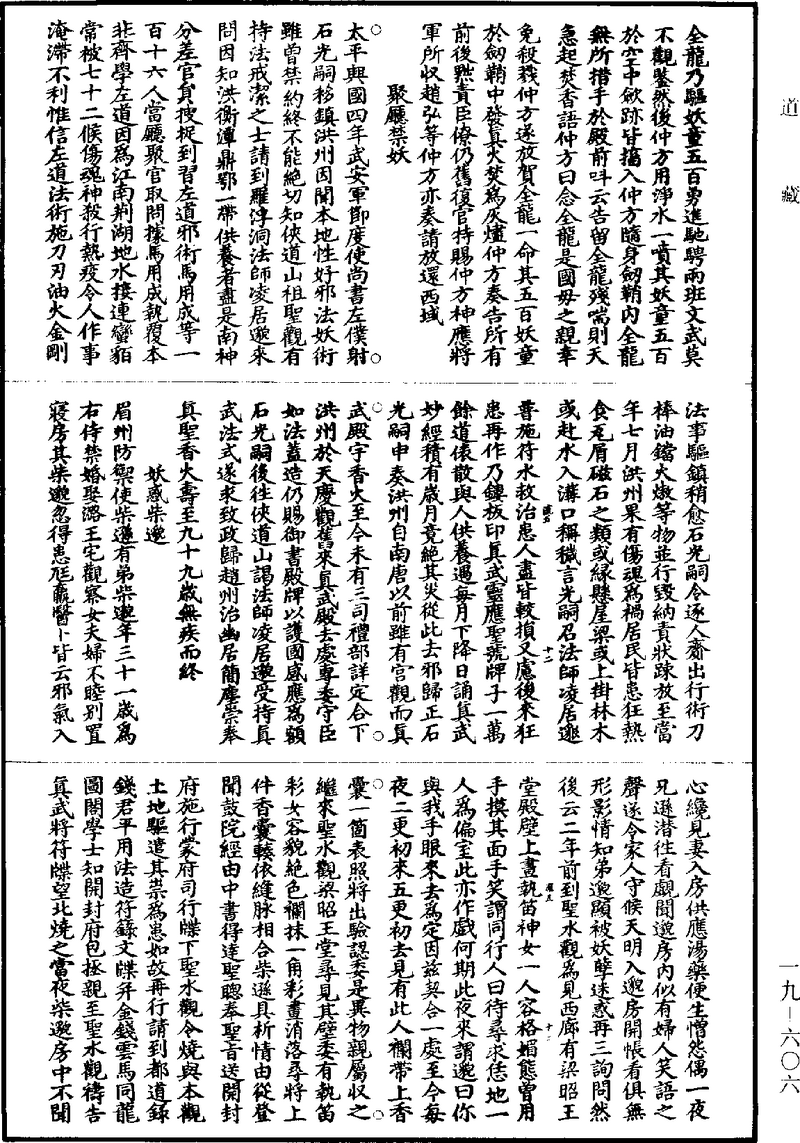 道藏
全龍乃驅妖童五百勇進馳騁兩班文武莫
不觀鑒然後仲方用淨水一噴其妖童五百
於空中斂跡皆搐入仲方隨身劒鞘內全龍
無所措手於殿前呌云告留全龍殘喘則天
急起焚香語仲方曰念全龍是國毋之親幸
免殺戮仲方遂放賀全龍一命其五百妖童
於劒鞘中發真火焚為灰燼仲方奏告所有
前後㸃責臣僚仍舊復官持賜仲方神應將
軍所収趙弘等仲方亦奏請放還西域
聚廳禁妖
太平興國四年武安軍節度使尚書左僕射
石光嗣移鎮洪州因聞本地性好邪法妖術
雖曾禁約終不能絕切知俠道山祖聖觀有
持法戒潔之士請到羅浮洞法師凌居邈來
問因知洪衡潭鼎鄂一帶供養者盡是南神
分差官員搜捉到習左道邪術馬用成等一
百十六人當廳聚官取問據馬用成執覆本
非齊學左道因為江南荊湖地水接連蠻貊
常被七十二候傷魂神殺行熱疫令人作事
淹滯不利惟信左道法術施刀刃油火金剛
法事驅鎮稍愈石光嗣令逐人齋出行術刀
棒油鐺火燉等物並行毀納責狀疎放至當
年七月洪州果有傷魂為禍居民皆患狂熱
食瓦屑磁石之類或緣懸屋梁或上掛林木
或赴水入溝口稱穢言光嗣召法師凌居邈
書施符水救治患人盡皆較損又慮後來狂
患再作乃鏤板印真武靈應聖號牌子一萬
餘道俵散與人供養遇每月下降日誦真武
妙經積有歲月竟絕其災從此去邪歸正石
光嗣申奏洪州自南唐以前雖有宮觀而真
武殿宇香火至今未有三司禮部詳定合下
洪州於天慶觀舊來真武殿去處專委守臣
如法蓋造仍賜御書殿牌以護國感應為額
石光嗣後往俠道山謁法師凌居邈受持真
武法式遂求致政歸趙州治幽居簡塵崇奉
真聖香火壽至九十九歲無疾而終
妖惑柴邈
眉州防禦使柴遜有弟柴邈年三十一歲為
右侍禁婚娶潞王宅觀察女夫婦不睦别置
寢房其柴邈忽得患尫羸醫卜皆云邪氣入
心纔見妻入房供應湯藥便生憎怨偶一夜
兄遜潛往看覷聞邈房內似有婦人笑語之
聲遂令家人守候天明入邈房開帳看俱無
形影情知弟邈顯被妖孽迷惑再三詢問然
後云二年前到聖水觀為見西廊有梁昭王
堂殿壁上畫執笛神女一人容格媚態曾用
手摸其面手笑謂同行人曰待尋求恁地一
人為偏室此亦作戲何期此夜來謂邈曰你
與我手眼來去為定因茲契合一處至今每
夜二更初來五更初去見有此人襴帶上香
囊一箇表照將出驗認委是異物親屬収之
繼來聖水觀梁昭王堂尋見其壁委有執笛
彩女容貌絕色襴抹一角彩畫消落尋將上
件香囊較依縫脉相合柴遜具析情由從登
聞鼓院經由中書得達聖聰奉聖旨送開封
府施行蒙府司行牒下聖水觀令燒與本觀
土地驅遣其祟為患如故再行請到都道錄
錢君平用法造符籙文牒并金錢雲馬同龍
圖閣學士知開封府包拯親至聖水觀禱告
真武將符牒望北燒之當夜柴邈房中不聞
一九-六〇六